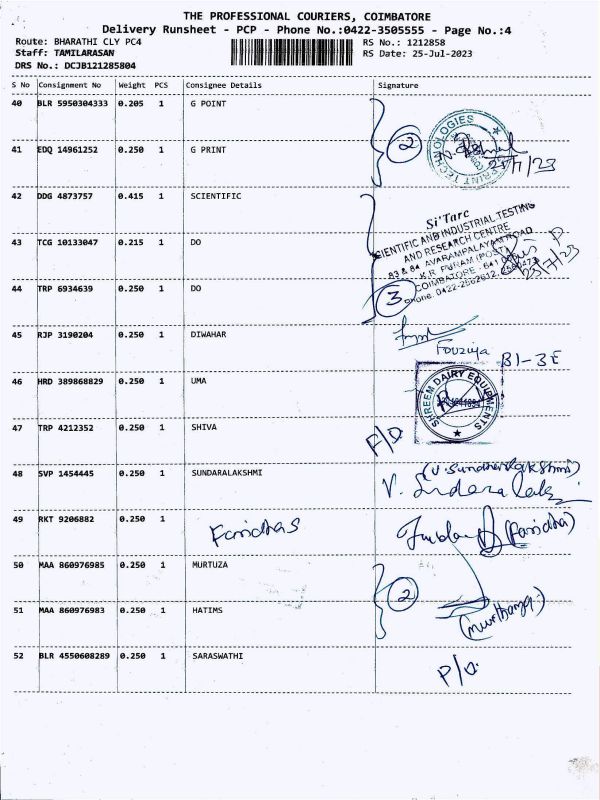 THE PROFESSIONAL COURIERS, COIMBATORE
Delivery Runsheet - PCP - Phone No.:0422-3505555 - Page No.:4
Route: BHARATHI CLY PC4 RS No.: 1212858
Staff: TAMILARASAN RS Date: 25-Jul-2023
DRS No.: DCJB121285804
S No Consignment No Weight PCS Consignee Details Signature
40 BLR 5950304333 0.205 1 G POINT
2
25/7/23
41 EDQ 14961252 0.250 1 G PRINT
42 DDG 4873757 0.415 1 SCIENTIFIC
Si'Tarc
SCIENTIFIC AND INDUSTRIAL TESTING
AND RESEARCH CENTRE
83 & 84 AVARAMPALAYAM ROAD
K.R. PURAM (POST)
COIMBATORE - 641
Phone: 0422-2562612,
25/7/23
43 TCG 10133047 0.215 1 DO
44 TRP 6934639 0.250 1 DO
3
45 RJP 3190204 0.250 1 DIWAHAR
Fouziya B1-3E
46 HRD 389868829 0.250 1 UMA
SHREEM DAIRY EQUIPMENTS
47 TRP 4212352 0.250 1 SHIVA F/D
48 SVP 1454445 0.250 1 SUNDARALAKSHMI
(V. Sundaralakshmi)
49 RKT 9206882 0.250 1 Faridhas (Faridha)
50 MAA 860976985 0.250 1 MURTUZA
2
51 MAA 860976983 0.250 1 HATIMS
52 BLR 4550608289 0.250 1 SARASWATHI P/D.